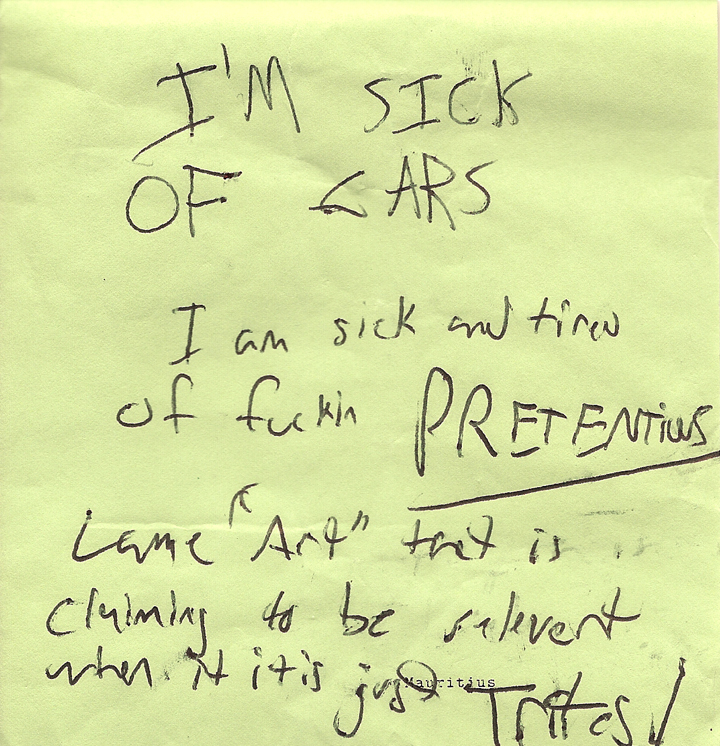 I'M SICK
OF CARS
I am sick and tired
of fuckin PRETENTIUS
Lame "Art" that is
claiming to be relevent
when it it is just Trites!
Mauritius